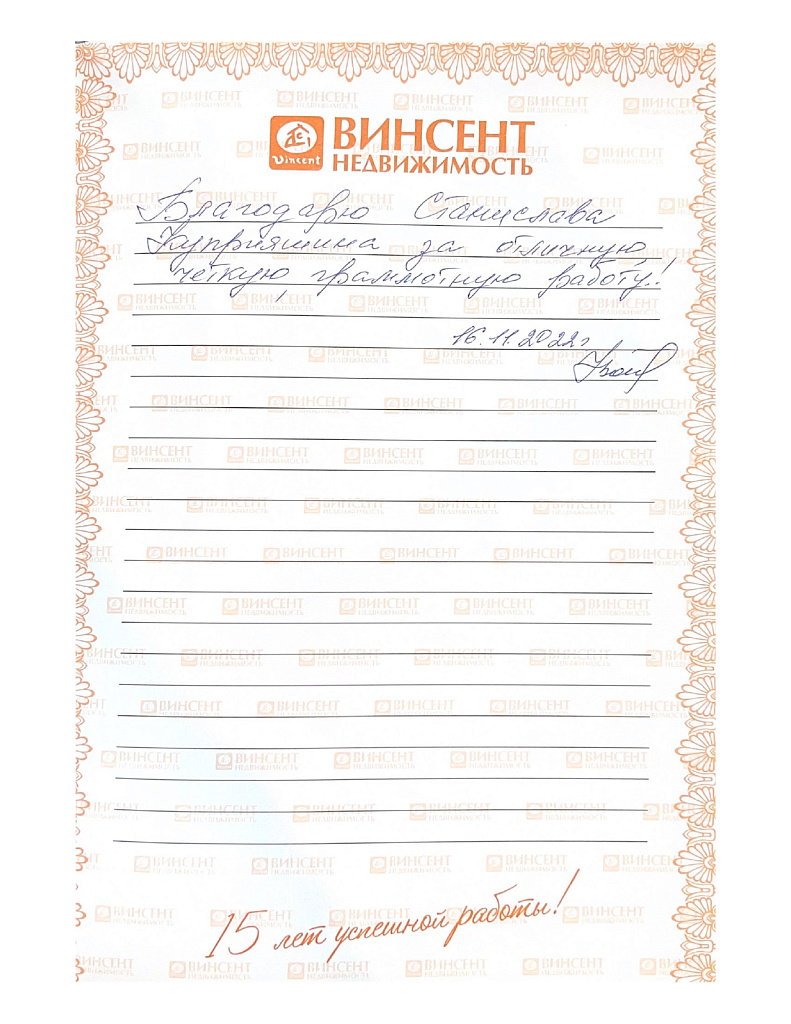 ВИНСЕНТ
НЕДВИЖИМОСТЬ
Vincent
Благодарю Станислава
Куприяшина за отличную
чёткую, граммотную работу..!
16.11.2022г
15 лет успешной работы!